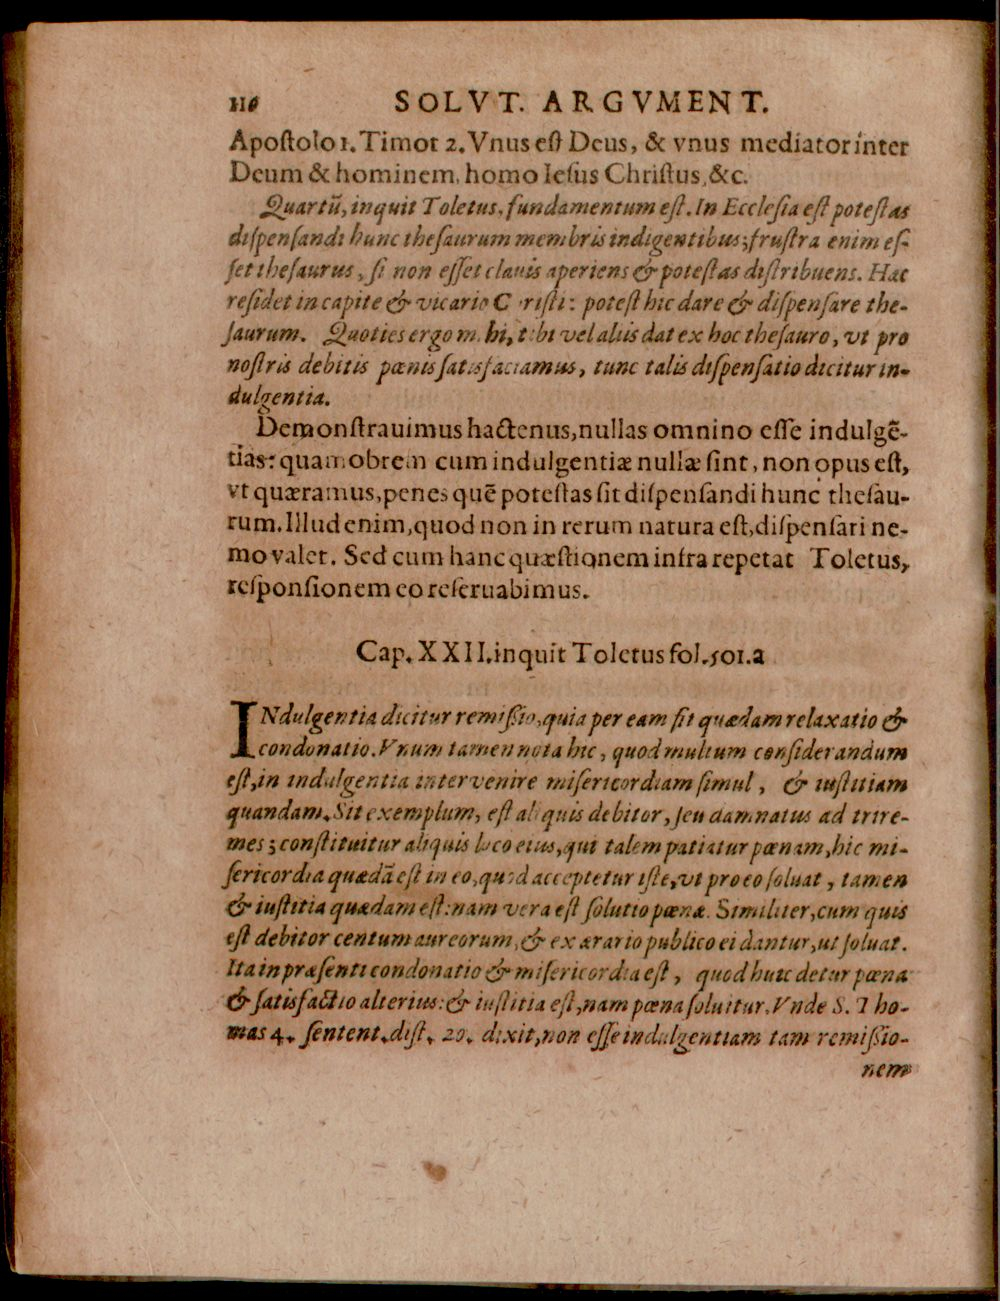 110 SOLVT. ARGVMENT.
Apostolo 1. Timot 2. Vnus est Deus, & vnus mediator inter
Deum & hominem, homo Iesus Christus, &c.
Quartũ, inquit Toletus, fundamentum est. In Ecclesia est potestas
dispensandi hunc thesaurum membris indigentibus; frustra enim es-
set thesaurus, si non esset clauis aperiens & potestas distribuens. Hæc
residet in capite & vicario C risti: potest hic dare & dispensare the-
saurum. Quoties ergo mihi, tibi vel aliis dat ex hoc thesauro, vt pro
nostris debitis pœnis satisfaciamus, tunc talis dispensatio dicitur in-
dulgentia.
Demonstrauimus hactenus, nullas omnino esse indulgẽ-
tias: quamobrem cum indulgentiæ nullæ sint, non opus est,
vt quæramus, penes quẽ potestas sit dispensandi hunc thesau-
rum. Illud enim, quod non in rerum natura est, dispensari ne-
mo valet. Sed cum hanc quæstionem infra repetat Toletus,
responsionem eo reseruabimus.
Cap. XXII. inquit Toletus fol. 501. a
INdulgentia dicitur remissio, quia per eam fit quædam relaxatio &
condonatio. Vnum tamen nota hic, quod multum considerandum
est, in indulgentia intervenire misericordiam simul, & iustitiam
quandam. Sit exemplum, est aliquis debitor, seu damnatus ad trire-
mes; constituitur aliquis loco eius, qui talem patiatur pœnam, hic mi-
sericordia quædã est in eo, quod acceptetur iste, vt pro eo soluat, tamen
& iustitia quædam est: nam vera est solutio pœnæ. Similiter, cum quis
est debitor centum aureorum, & ex ærario publico ei dantur, ut soluat.
Ita in præsenti condonatio & misericordia est, quod huic detur pœna
& satisfactio alterius: & iustitia est, nam pœna soluitur. Vnde S. Tho-
mas 4. sentent. dist. 20. dixit, non esse indulgentiam tam remissio-
nem